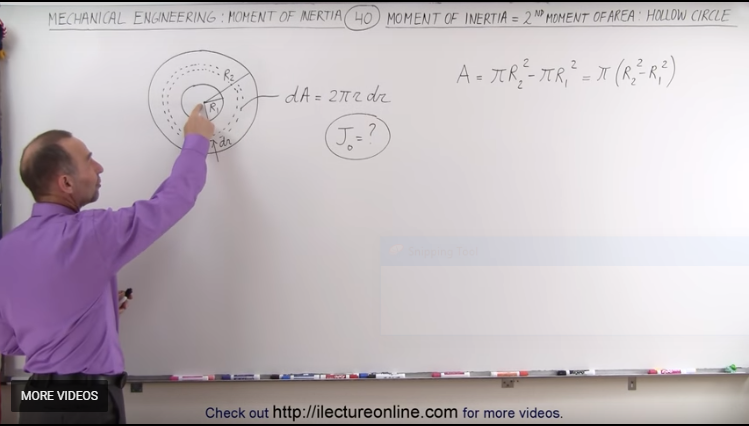 MECHANICAL ENGINEERING: MOMENT OF INERTIA 40 MOMENT OF INERTIA = 2ND MOMENT OF AREA: HOLLOW CIRCLE
R₂
R₁
dr
dA = 2πr dr
J₀ = ?
A = πR₂² - πR₁² = π(R₂² - R₁²)
MORE VIDEOS
Check out http://ilectureonline.com for more videos.